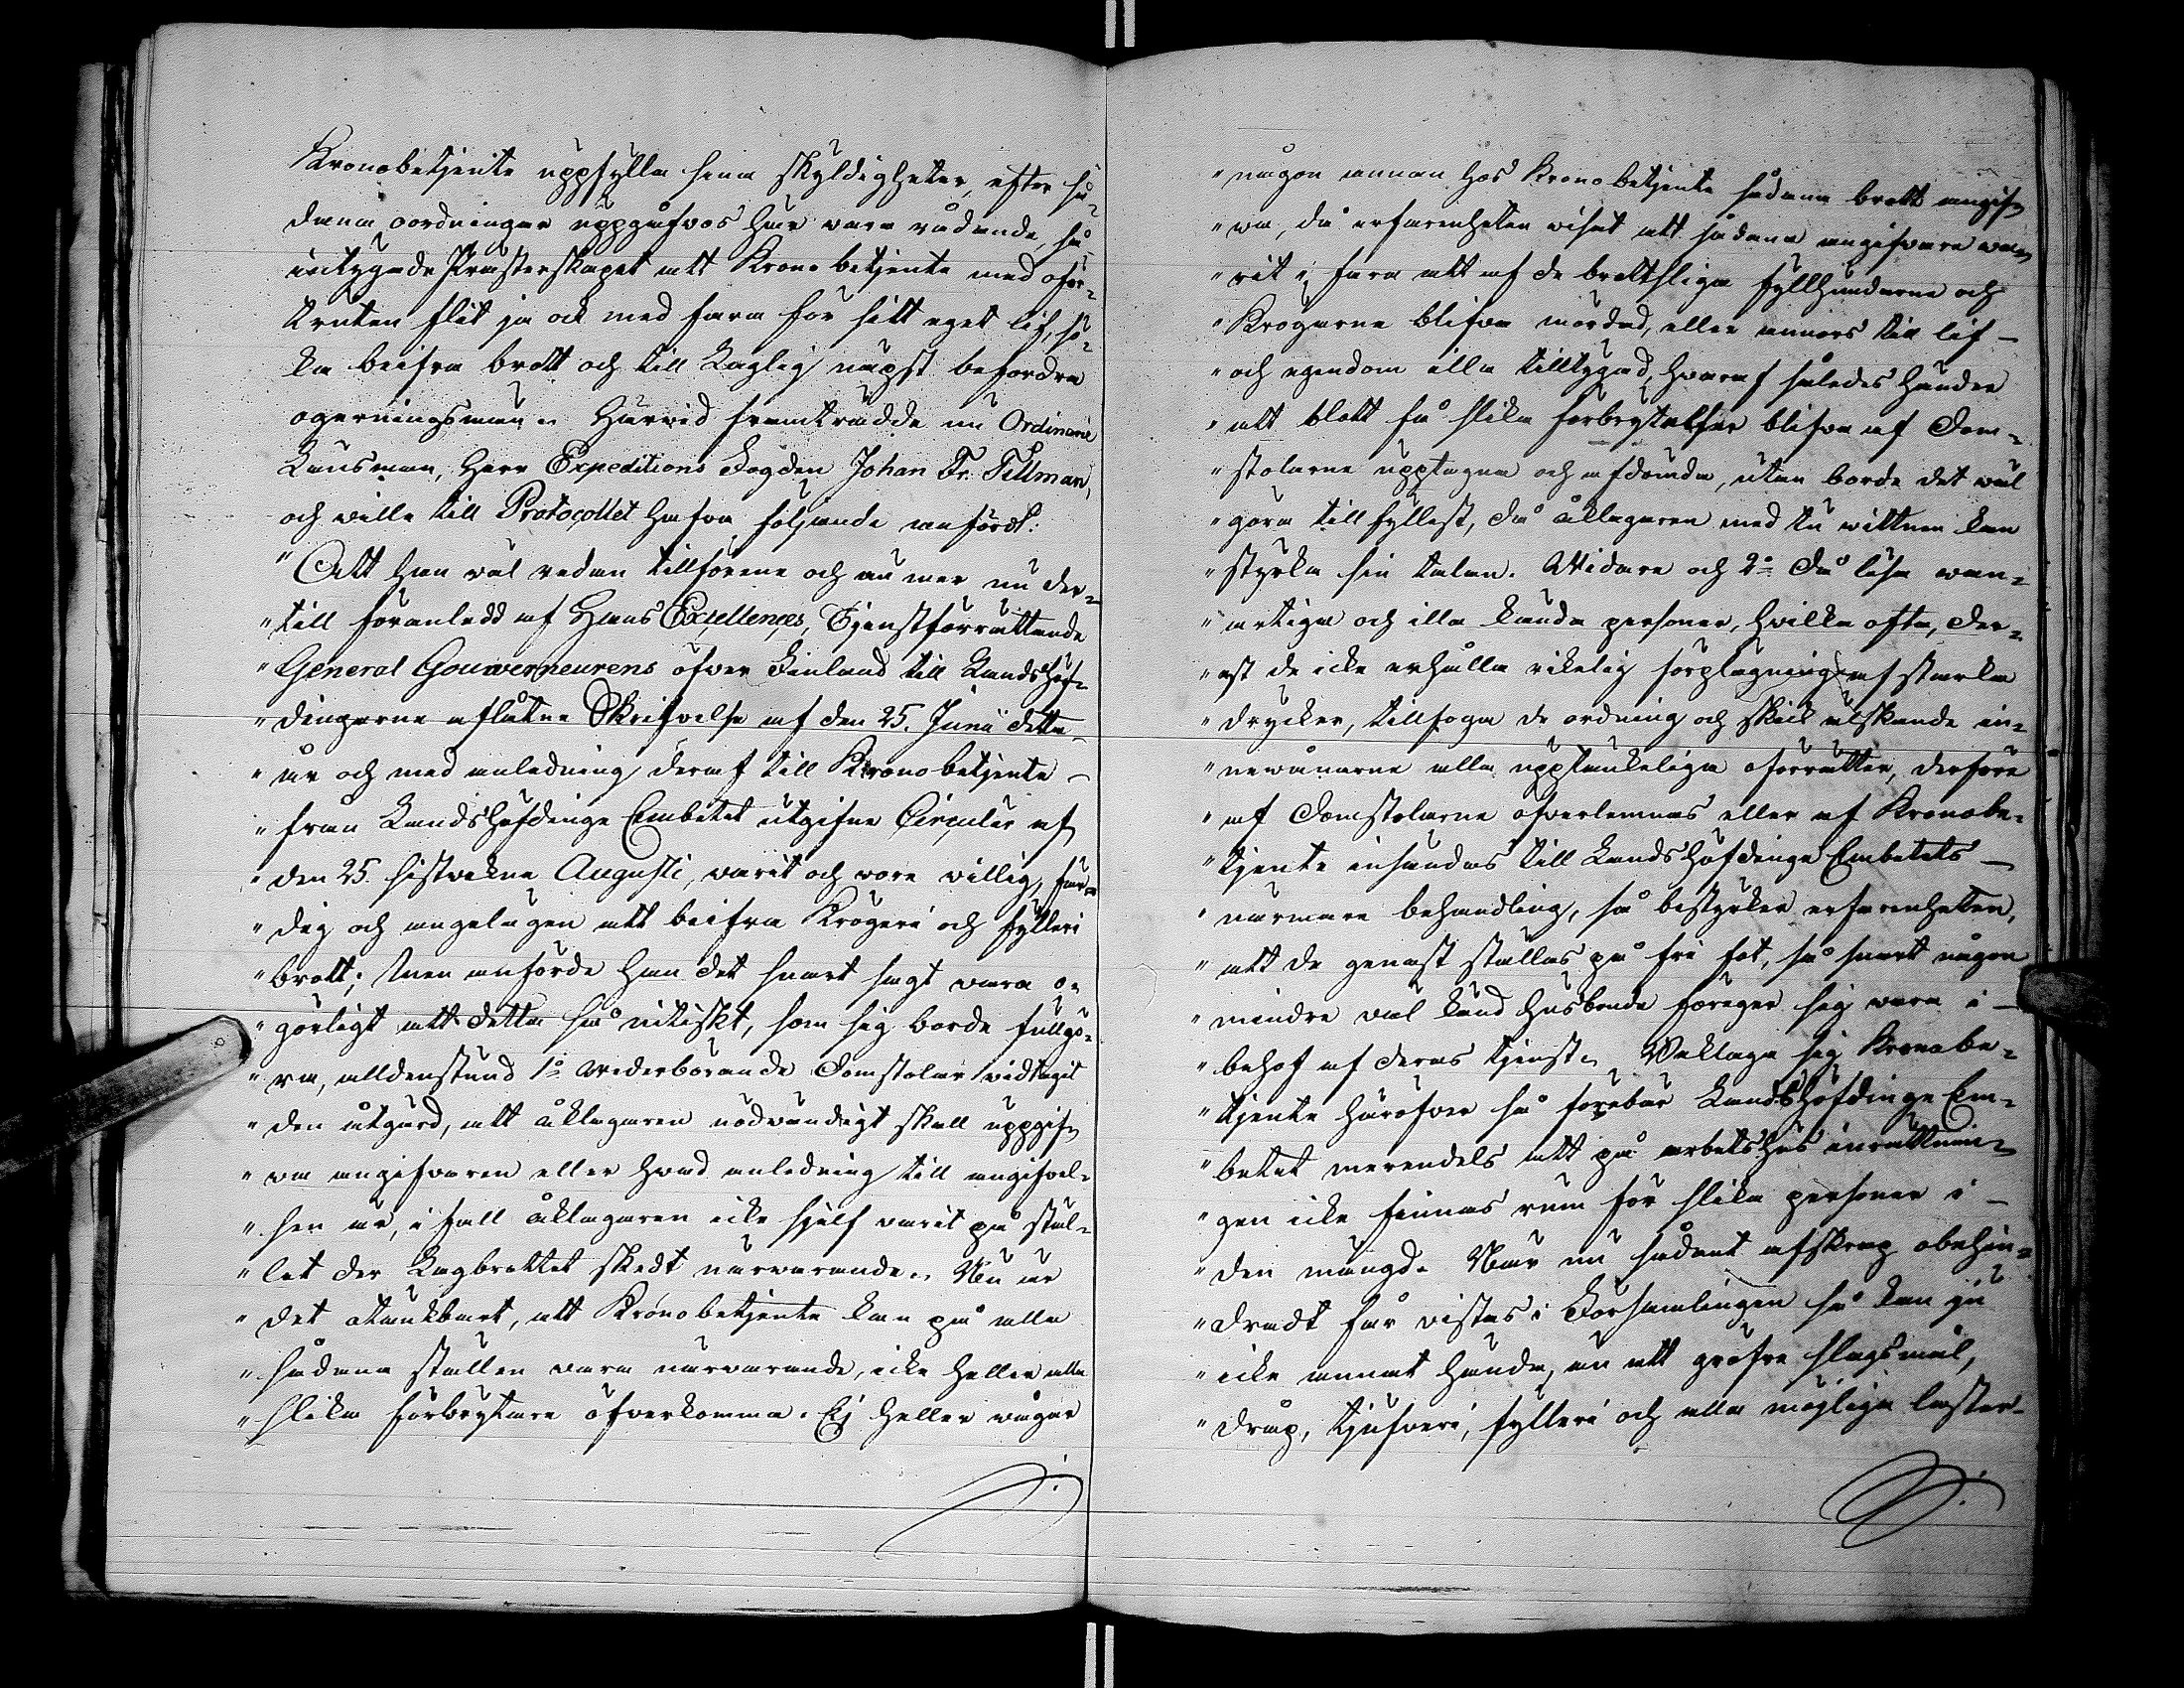 Kronobetjente uppfylla sina skyldigheter, efter så-
dana oordningar uppgåfvos här vara rådande, så
intygade Prästerskapet att Kronobetjente med oför-
truten flit ja ock med fara för sitt eget lif, sö-
ka beifra brott och till Laglig näpst befordra
ogerningsmän. Härvid framträdde nu Ordinarie
Länsman, Herr Expeditions Fogden Johan Fr. Tillman,
och ville till Protocollet hafva följande anfördt:
"Att han väl redan tillförene och än mer nu der-
"till föranledd af Hans Excellences, Tjenstförrättande
"General Gouverneurens öfver Finland till Landshöf-
"dingarne aflåtne Skrifvelse af den 25. Junii detta
"år och med anledning deraf till Kronobetjente
"från Landshöfdinge Embetet utgifne Circulär af
"den 25. sistvekne Augusti, varit och vore villig, fär-
"dig och angelägen att beifra Krögeri och fylleri
"brott; Men anförde han det snart sagt vara o-
"görligt att detta så nitiskt, som sig borde fullgö-
"ra, alldenstund 1o vederbörande Domstolar vidtagit
"den åtgärd, att åklagaren nödvändigt skall uppgif-
"va angifvaren eller hvad anledning till angifvel-
"sen är, i fall åklagaren icke sjelf varit på stäl-
"let der Lagbrottet skedt närvarande. Nu är
"det otänkbart, att Kronobetjente kan på alla
"sådana ställen vara närvarande, icke heller alla
"slika förbrytare öfverkomma. Ej heller vågar
"någon annan hos Kronobetjente sådana brott angif-
"va, då erfarenheten visat att sådane angifvare va-
"rit i fara att af de brottsliga fyllhundarne och
"Krögarne blifva mördad, eller annors till lif
"och egendom illa tilltygad, hvaraf således händer
"att blott få slika förbrytelser blifva af Dom-
"stolarne upptagna och afdömda, utan borde det väl
"göra tillfyllest, då åklagaren med tu vittnen kan
"styrka sin talan. Widare och 2o Då lösa van-
"artiga och illa kända personer, hvilka ofta, der-
"est de icke erhålla rikelig förplägning af starka
"drycker, tillfoga de ordning och skick älskande in-
"nevånarne alla upptänkeliga oförrätter, derföre
"af Domstolarne öfverlemnas eller af Kronobe-
"tjente insändas till Landshöfdinge Embetets
"närmare behandling, så bestyrker erfarenheten,
"att de genast ställas på fri fot, så snart någon
"mindre väl känd husbonde föreger sig vara i
"behof af deras tjenst. Beklaga sig Kronobe-
"tjente häröfver så förebär Landshöfdinge Em-
"betet merendels att på arbetshus inrättnin-
"gen icke finnas rum för slika personer i
"den mängd. När nu sådant afskrap obehin-
"dradt får vistas i Församlingen så kan ju
"icke annat hända, än att gröfre slagsmål,
"dråp, tjufveri, fylleri och alla möjliga laster